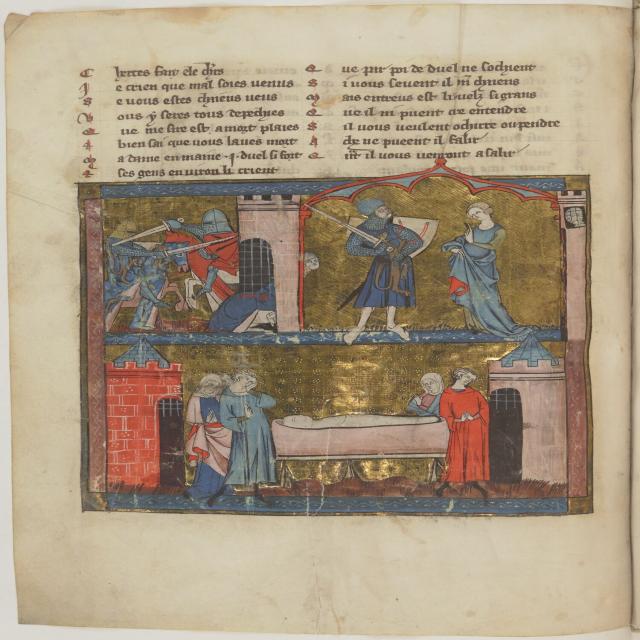 C ertes fait ele chrs
J e crien que mal soies venus
S e vous estes chaiens veus
V ous y seres tous depechies
Q ue me sire est a mort plaies
E bien sai que vous laves mort
M a dame en maine .i. duel si fort
E ses gens environ li crient
Q ue par poi de duel ne sochient
S i vous sevent il chaiens
M ais entreus est li duelz si grans
Q ue il ni puent ore entendre
S il vous veulent ochirre ou pendre
A che ne pueent il falir
Q il vous venront asalir